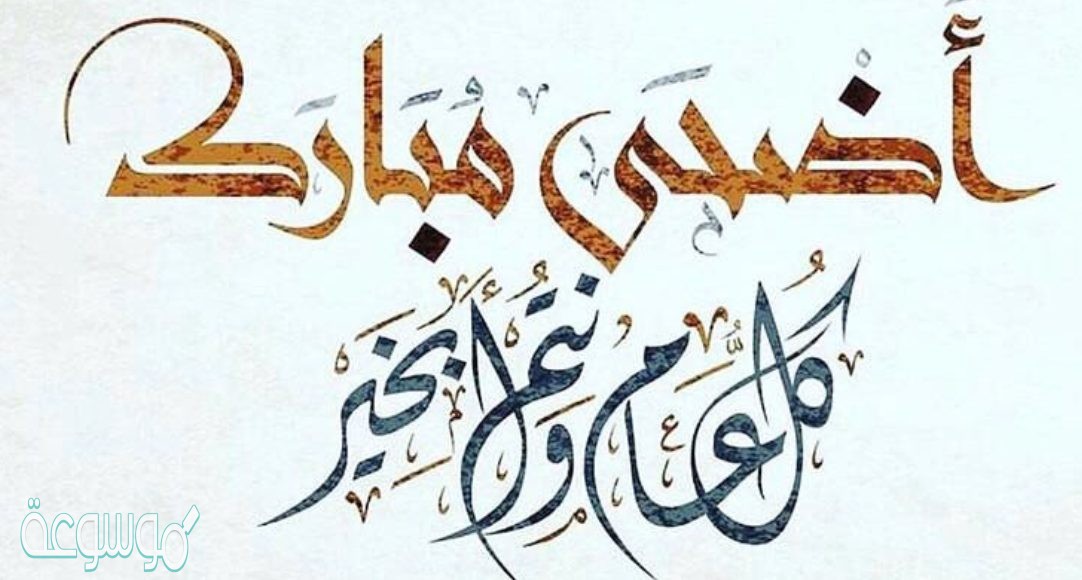 أَضْحَى مُبَارَك
كُلُّ عَامٍ وَأَنْتُمْ بِخَيْر
موسوعة